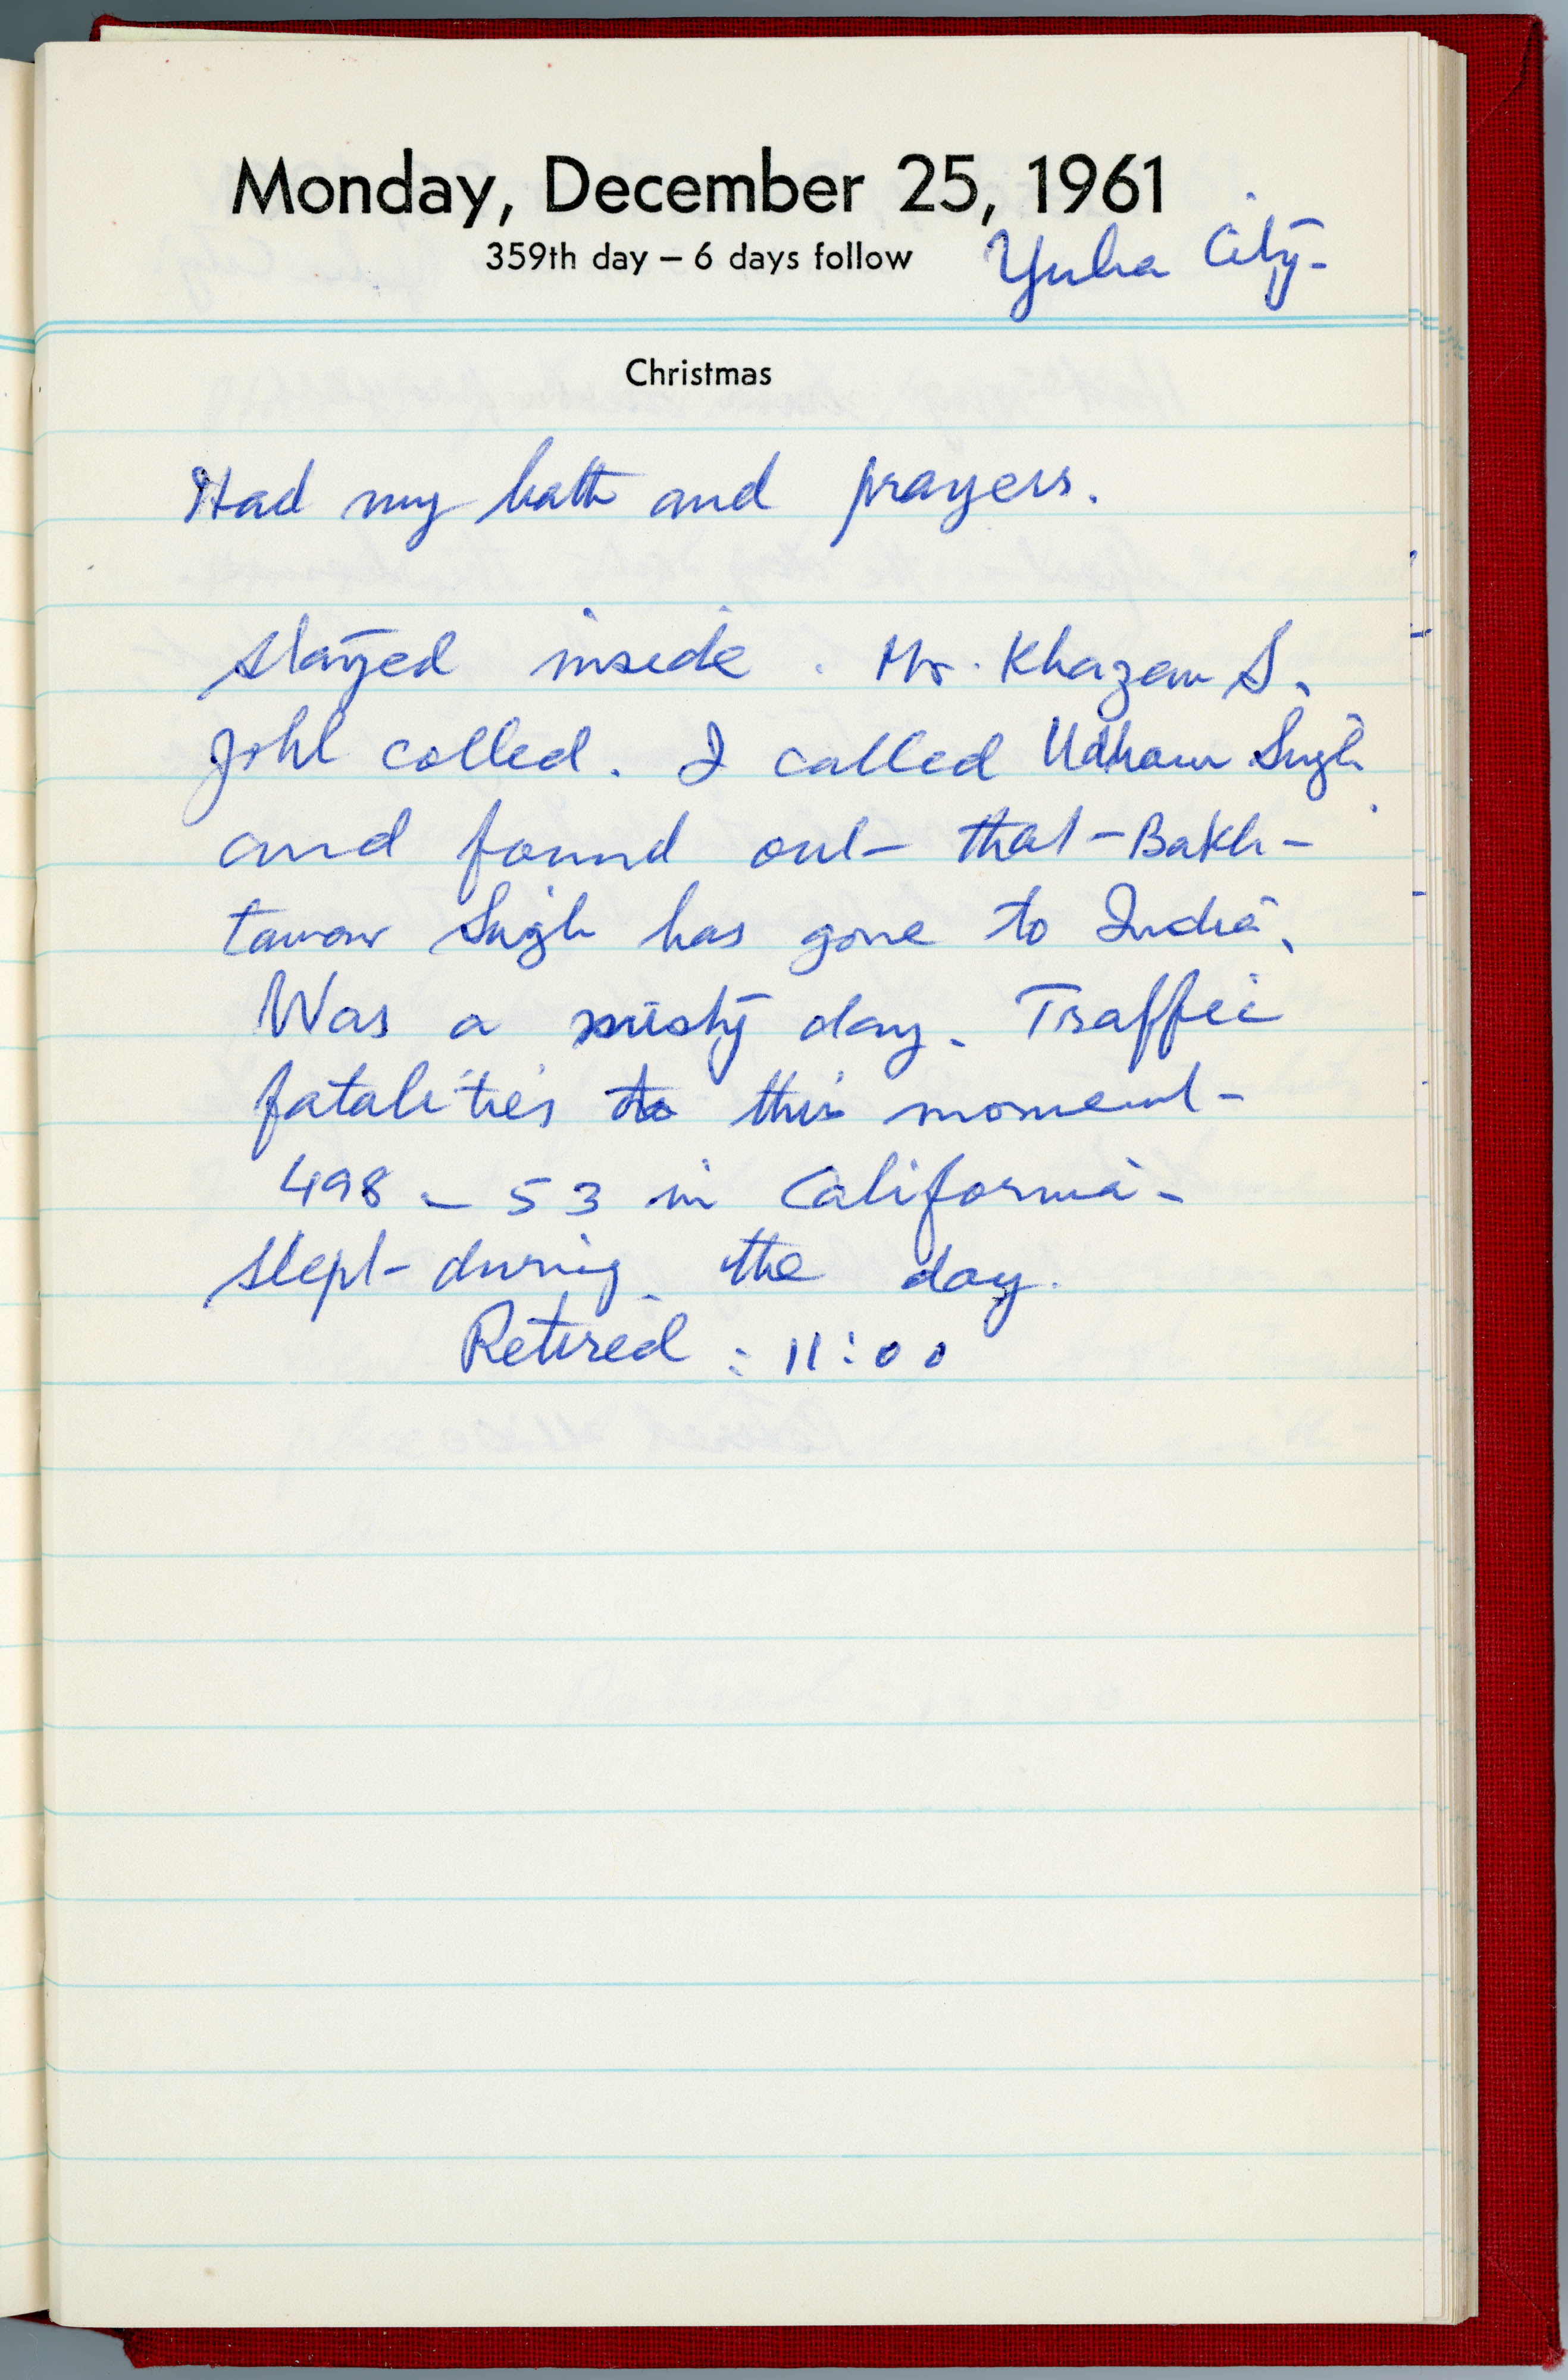 Monday, December 25, 1961
359th day – 6 days follow
Yuba City-
Christmas
Had my bath and prayers.
Stayed inside. Mr. Khazan S.
Johl called. I called Udham Singh
and found out that Bakh-
tawar Singh has gone to India.
Was a misty day. Traffic
fatalities to this moment
498 - 53 in California -
Slept during the day.
Retired : 11:00